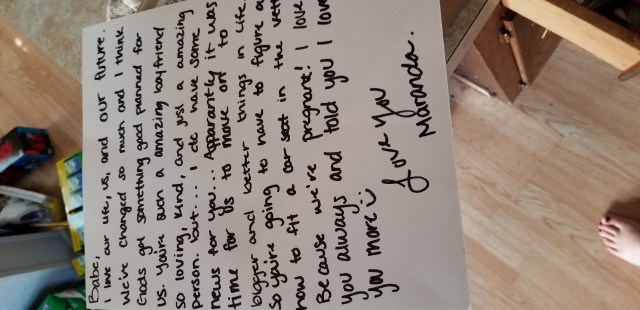 Babe,
I love our life, us, and our future.
We've changed so much and I think
Gods got something good planned for
us. You're such a amazing boyfriend
so loving, kind, and just a amazing
person. but... I do have some
news for you... Apparantly it was
time for us to move on to
bigger and better things in life.
So you're going to have to figure o
how to fit a car seat in the vett
Because we're pregnant! I love
you always and told you I love
you more
Love you
Maranda.